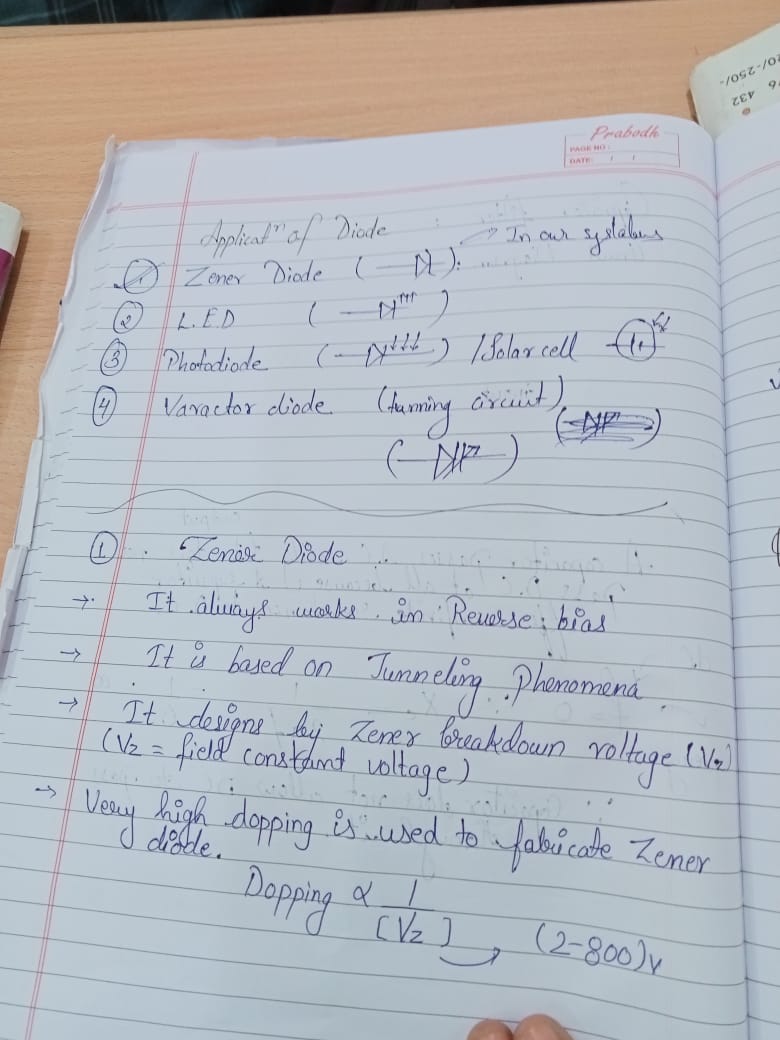 20/-250/-
6 432
Prabodh
PAGE NO:
DATE: / /
Applicatⁿ of Diode
→ In our syslabus
① Zener Diode ( ):
② L.E.D ( )
③ Photodiode ( ) / Solar cell
④ Varactor diode (tunning circuit)
( )
① Zener Diode
→ It always works in Reverse bias
→ It is based on Tunneling Phenomena
→ It designs by Zener breakdown voltage (Vz)
(Vz = field constant voltage)
→ Very high dopping is used to fabricate Zener
diode.
Dopping ∝ 1
[Vz] → (2-800)v